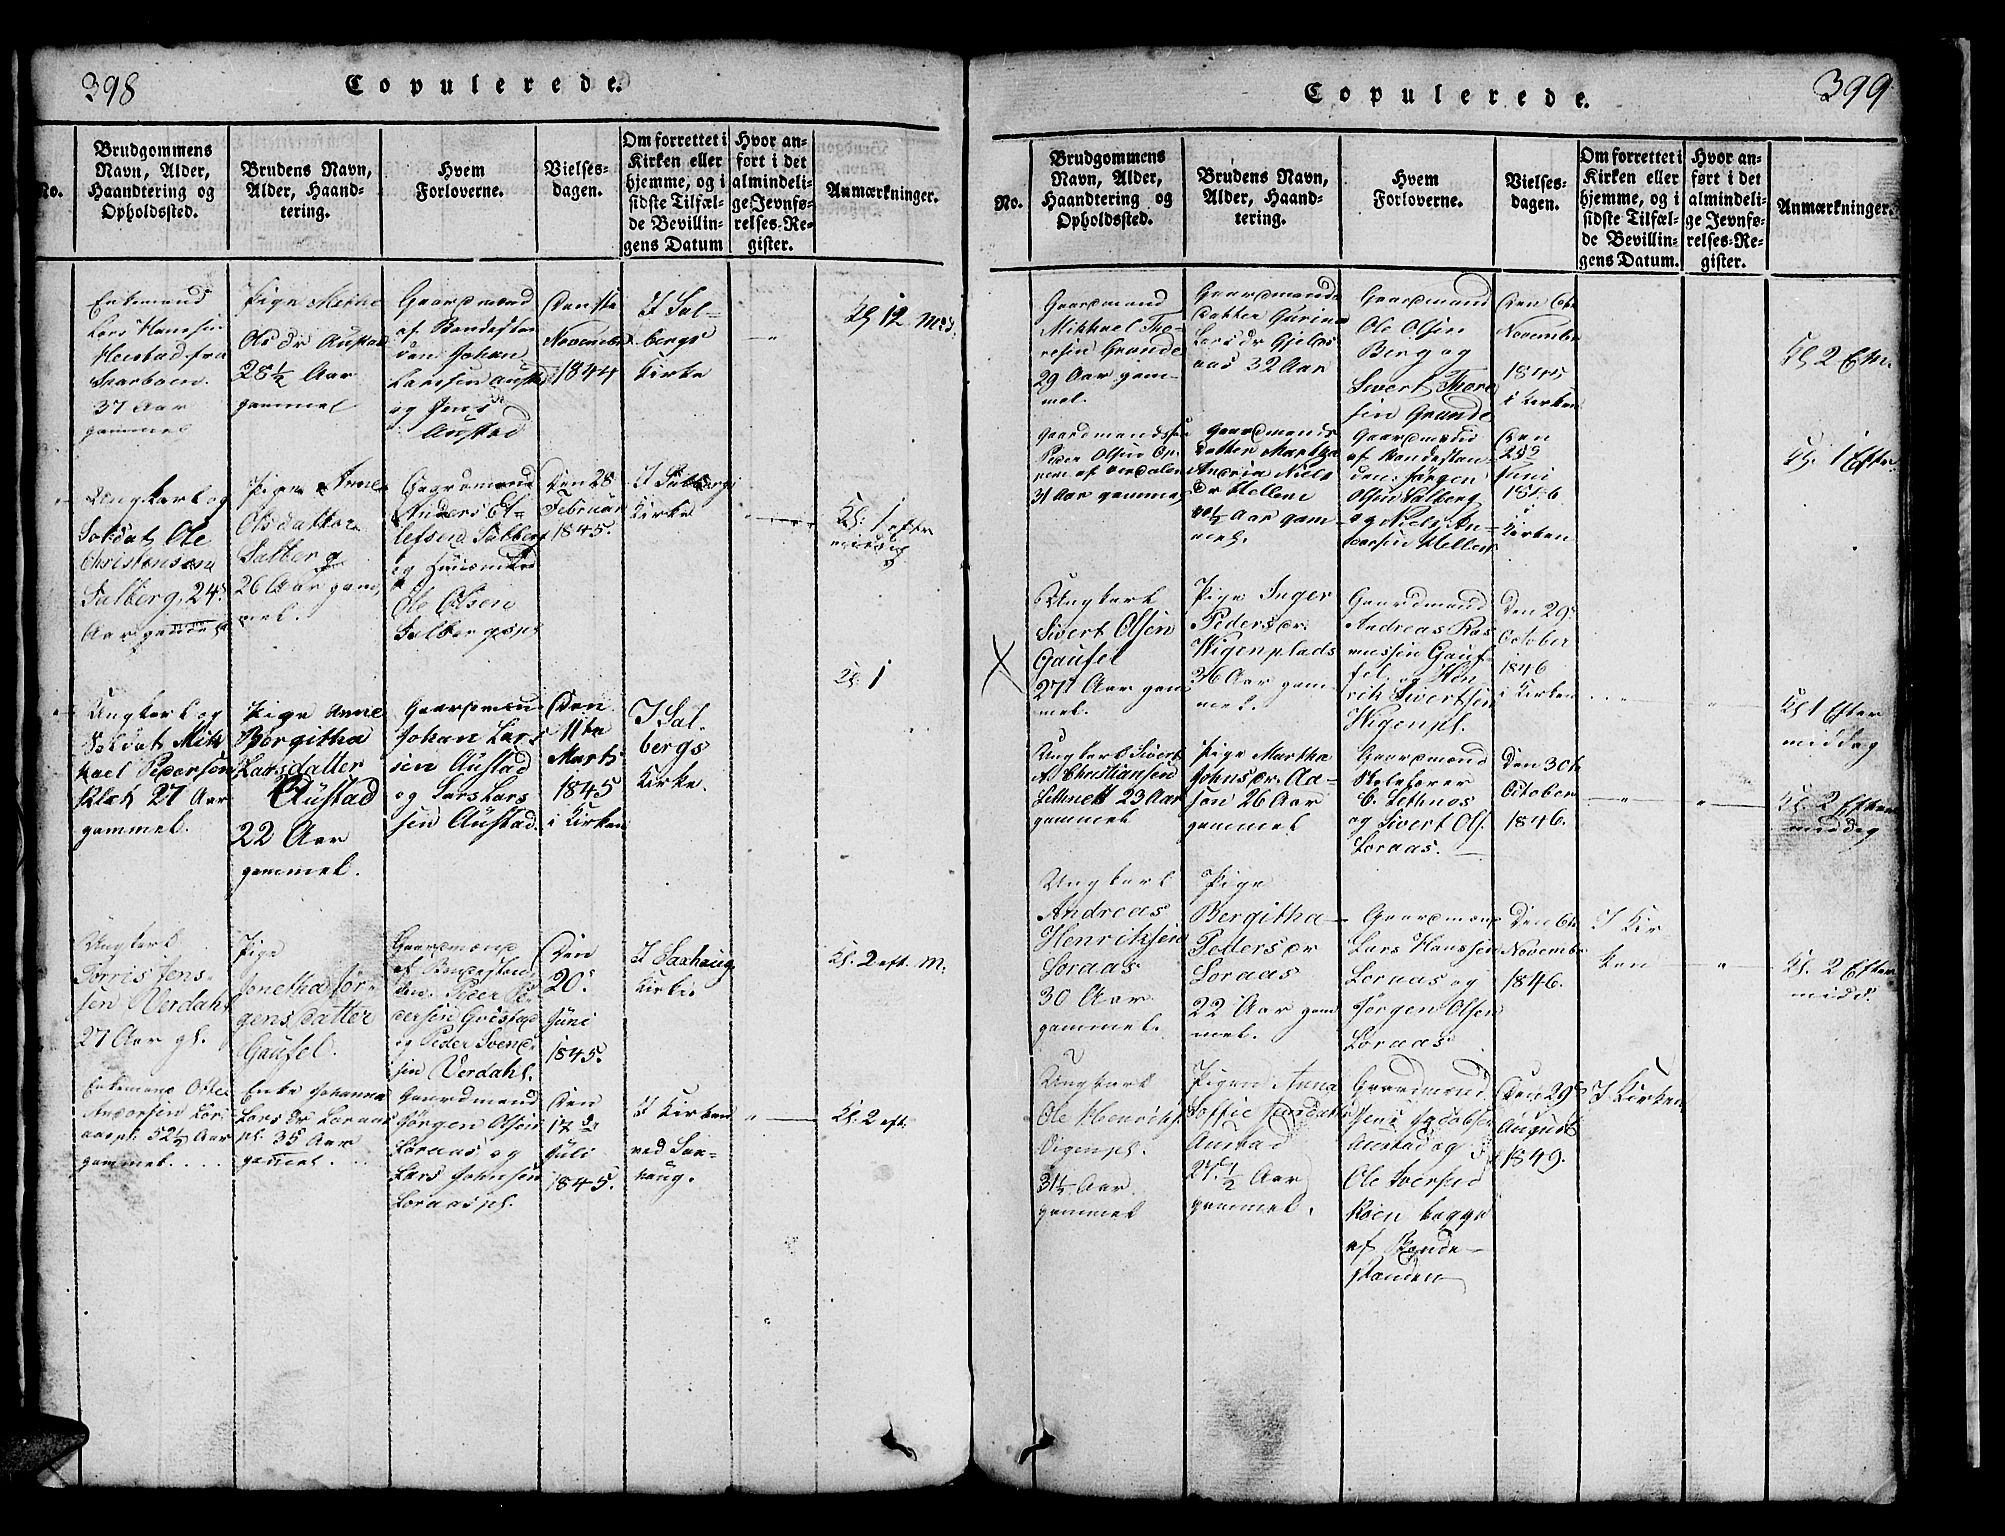 398
Copulerede.
No.
Brudgommens
Navn, Alder,
Haandtering og
Opholdssted.
Brudens Navn,
Alder, Haand-
tering.
Hvem
Forloverne.
Vielses-
dagen.
Om forrettet i
Kirken eller
hjemme, og i
sidste Tilfæl-
de Bevillin-
gens Datum
Hvor an-
ført i det
almindeli-
ge Jevnfø-
relses-Re-
gister.
Anmærkninger.
Enkemand
Lars Hansen
Heistad fra
Sparboen.
37 Aar
gammel
Pige
Olsdr Austad
28½ Aar
gammel
Gaardmænd
af Bondestan
den Johan
Larssen Aust
og Jens
Austad
Den
November
1844
I Sal-
bergs
Kirke
Kl 12 Mid.
Ungkarl og
Soldat Ole
Christensen
Salberg, 24
Aar gammel
Pige Anne
Olsdatter
Salberg
26 Aar gam
mel.
Gaardmænd
Anders El-
lefsen Salberg
og Huusmand
Ole Olsen
Salbergspl
Den 28
Februar
1845.
I Salbergs
Kirke
Kl: 1 efter
middag
Ungkarl og
Soldat Mik
kael Pedersen
Klæt 27 Aar
gammel.
Pige Anne
Borgitha
Larsdatter
Austad
22 Aar
gammel.
Gaardmæn
Johan Lars
sen Austad
og Lars Lars
sen Austad.
Den
11te
Marts
1845
i Kirken
I Sal-
bergs
Kirke.
Kl: 1
Ungkarl
Torris Jens-
sen Verdahl
27 Aar gl.
Pige
Jonetha Jør-
gensdatter
Gaufel.
Gaardmænd
af Bondestan
den Peder Pe-
dersen Gristad
og Peder Svend-
sen Verdahl.
Den
20
Juni
1845.
I Saxhaug
Kirke.
Kl. 2 eft. M.
Enkemand
Andersen Lor-
aaspl. 52½ Aar
gammel.
Enke Johanna
Larsdr Loraas
pl. 35 Aar
gammel.
Gaardmænd
Jørgen Olsen
Loraas og
Lars Johnsen
Loraaspl.
Den
17de
Juli
1845.
I Kirken
ved Sax-
haug.
Kl. 2 eft.
399
Copulerede.
No.
Brudgommens
Navn, Alder,
Haandtering og
Opholdssted.
Brudens Navn,
Alder, Haand-
tering.
Hvem
Forloverne.
Vielses-
dagen.
Om forrettet i
Kirken eller
hjemme, og i
sidste Tilfæl-
de Bevillin-
gens Datum.
Hvor an-
ført i det
almindeli-
ge Jevnfø-
relses-Re-
gister.
Anmærkninger.
Gaardmand
Mikkael Tho-
resen Grande
29 Aar gam-
mel.
Gaardmands
datter Gurina
Larsdr Gjeles
aas 32 Aar
Gaardmænd
Ole Olsen
Berg og
Sivert Thore
sen Grande
Den 6te
November
1845
i Kirken
Kl 2 Efm.
Gaardmandssøn
Peder Olsen
af Verdalen
31 Aar gammel
Gaardmands
datter Martha
Andria Niels
Dr Hellem
Aar gam
mel.
Gaardmænd
af Bondestan
den: Jørgen
Olsen Salberg
og Niels An-
dersen Hellem
Den
Juni
1846
i
Kirken
Kl. 1 Efter
Ungkarl
Sivert Olsen
Gaufel
27 Aar gam
mel.
Pige Inger
Pedersdr
Wigenplads
36 Aar gam
mel.
Gaardmænd
Andreas Ras
mussen Gauf-
fel. og Hen
rik Sivertsen
Wigenpl.
Den 29
October
1846
i Kirken
Kl 1 Efter
middag
Ungkarl Sivert
Christiansen
Lethnett 23 Aar
gammel
Pige Martha
Johnsdr Aa-
sen 26 Aar
gammel
Gaardmænd
Skolelærer
C. Lethnes
og Sivert Ols.
Loraas.
Den 30te
October
1846.
Kl 2 Efter
middag
Ungkarl
Andreas
Henriksen
Loraas
30 Aar
gammel.
Pige
Bergitha
Pedersdr
Loraas
22 Aar gam
mel.
Gaardmænd
Lars Hanssen
Loraas og
Jørgen Olsen
Loraas
Den 6te
Novembr
1846.
I Kir-
ken
Kl. 2 Efter
midd.
Ungkarl
Ole Henriks.
Vigenpl.
31½ Aar
gammel
Pigen Anna
Soffie Jensdatter
Austad
27 ½ Aar
gammel.
Gaardmænd
Jens Jacobsen
Austad og
Ole Iversen
Roen begge
af Bonde-
standen
Den 29
August
1849.
I Kirken